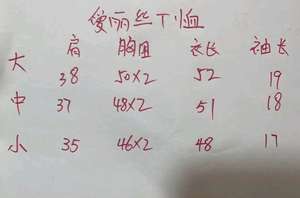 缦丽丝T恤
肩 胸围 衣长 袖长
大 38 50×2 52 19
中 37 48×2 51 18
小 35 46×2 48 17